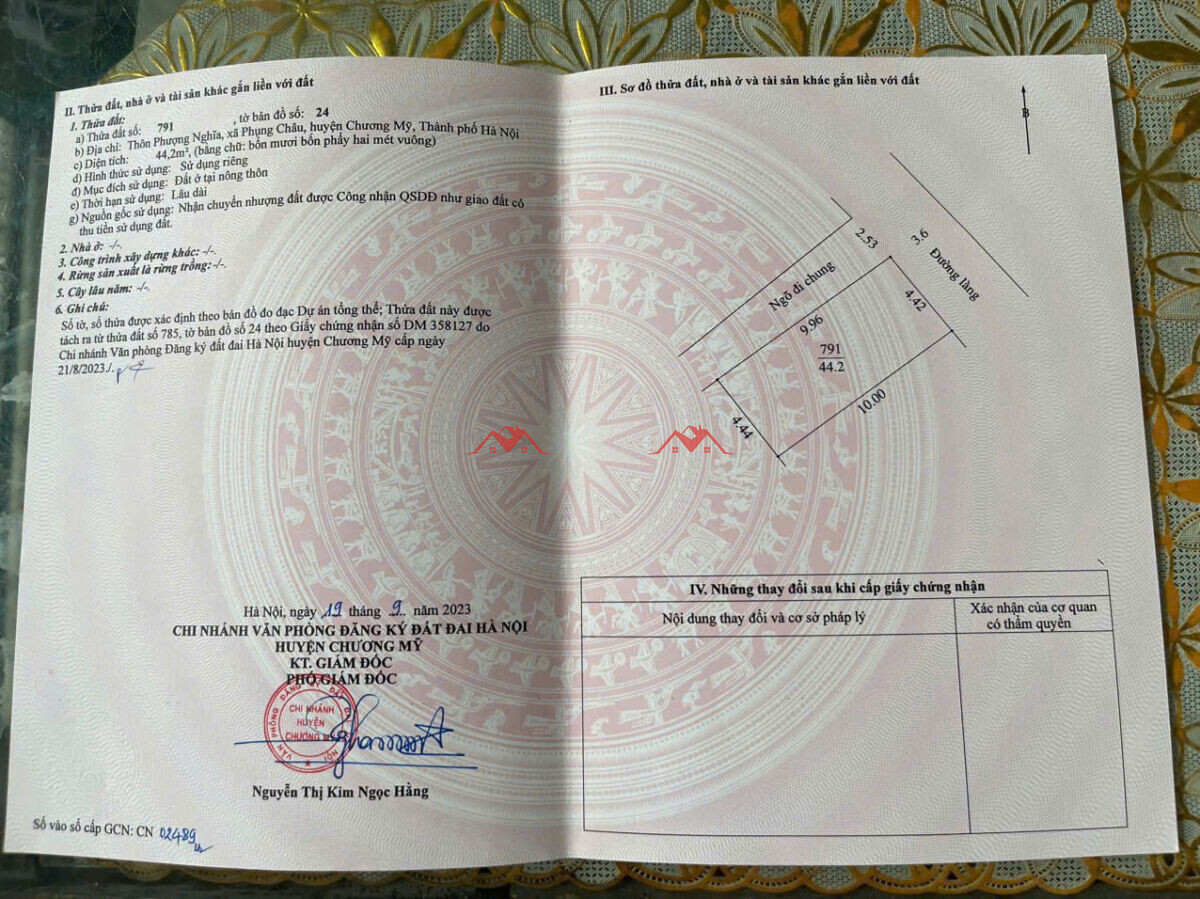 II. Thửa đất, nhà ở và tài sản khác gắn liền với đất
1. Thửa đất:
a) Thửa đất số: 791 , tờ bản đồ số: 24
b) Địa chỉ: Thôn Phượng Nghĩa, xã Phụng Châu, huyện Chương Mỹ, Thành phố Hà Nội
c) Diện tích: 44,2m², (bằng chữ: bốn mươi bốn phẩy hai mét vuông)
d) Hình thức sử dụng: Sử dụng riêng
đ) Mục đích sử dụng: Đất ở tại nông thôn
e) Thời hạn sử dụng: Lâu dài
g) Nguồn gốc sử dụng: Nhận chuyển nhượng đất được Công nhận QSDĐ như giao đất có
thu tiền sử dụng đất.
2. Nhà ở: -/-.
3. Công trình xây dựng khác: -/-.
4. Rừng sản xuất là rừng trồng: -/-.
5. Cây lâu năm: -/-.
6. Ghi chú:
Số tờ, số thửa được xác định theo bản đồ đo đạc Dự án tổng thể; Thửa đất này được
tách ra từ thửa đất số 785, tờ bản đồ số 24 theo Giấy chứng nhận số DM 358127 do
Chi nhánh Văn phòng Đăng ký đất đai Hà Nội huyện Chương Mỹ cấp ngày
21/8/2023./.
Hà Nội, ngày 19 tháng 9. năm 2023
CHI NHÁNH VĂN PHÒNG ĐĂNG KÝ ĐẤT ĐAI HÀ NỘI
HUYỆN CHƯƠNG MỸ
KT. GIÁM ĐỐC
PHÓ GIÁM ĐỐC
VĂN PHÒNG ĐĂNG KÝ ĐẤT ĐAI HÀ NỘI
CHI NHÁNH
HUYỆN
CHƯƠNG MỸ
Nguyễn Thị Kim Ngọc Hằng
Số vào sổ cấp GCN: CN 02489
III. Sơ đồ thửa đất, nhà ở và tài sản khác gắn liền với đất
B
2.53
3.6
Đường làng
Ngõ đi chung
4.42
9.96
791
44.2
10.00
4.44
IV. Những thay đổi sau khi cấp giấy chứng nhận
Nội dung thay đổi và cơ sở pháp lý
Xác nhận của cơ quan
có thẩm quyền